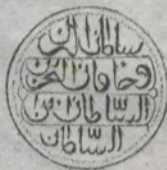 سلطان البرين
وخاقان البحرين
السلطان ابن
السلطان